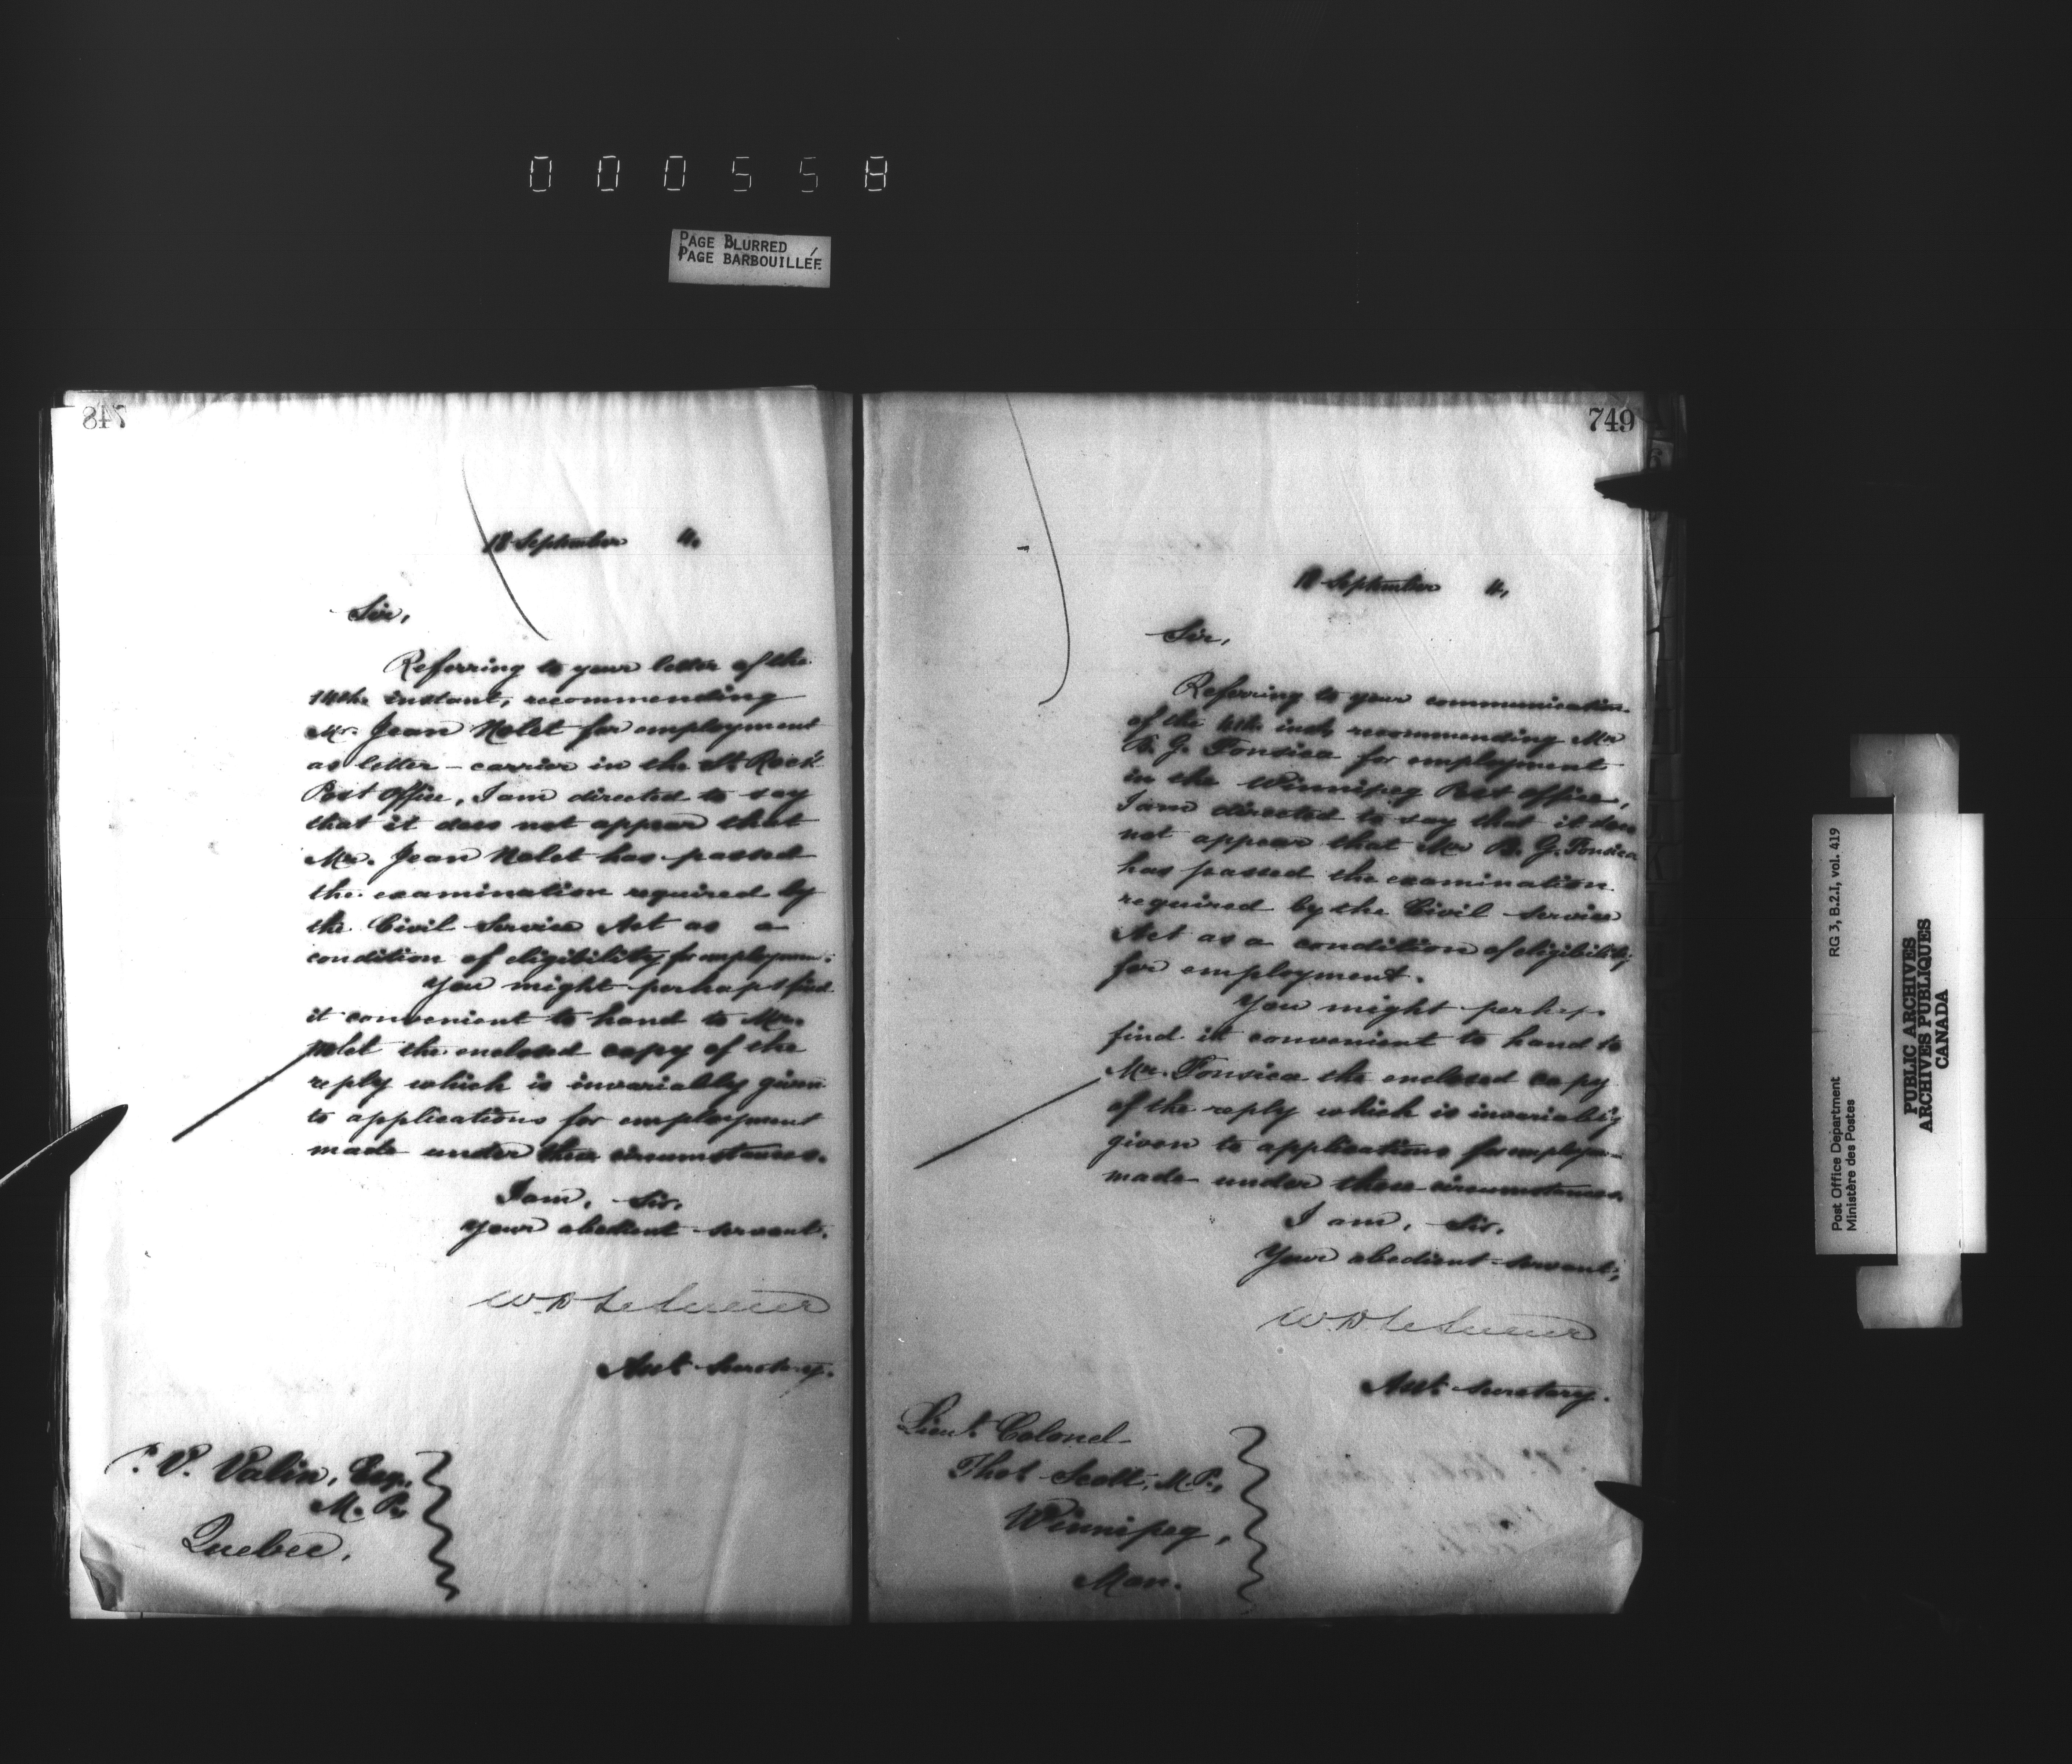 000558
PAGE BLURRED
PAGE BARBOUILLÉE
748
18 September 4.
Sir,
Referring to your letter of the
14th instant, recommending
Mr. Jean Nolet for employment
as letter-carrier in the St. Roch
Post Office, I am directed to say
that it does not appear that
Mr. Jean Nolet has passed
the examination required by
the Civil Service Act as a
condition of eligibility for employm
You might perhaps find
it convenient to hand to Mr.
Nolet the enclosed copy of the
reply which is invariably given
to applications for employment
made under these circumstances.
I am, Sir,
Your obedient servant,
W. D. LeSueur
Asst. Secretary.
P. V. Valin, Esq.,
M. P.,
Quebec.
749
18 September 4,
Sir,
Referring to your communication
of the inst, recommending Mr
B. G. Fonseca for employment
in the Winnipeg Post Office,
I am directed to say that it does
not appear that Mr B. G. Fonseca
has passed the examination
required by the Civil Service
Act as a condition of eligibility
for employment.
You might perhaps
find it convenient to hand to
Mr. Fonseca the enclosed copy
of the reply which is invariably
given to applications for employm
made under these circumstances.
I am, Sir,
Your obedient servant,
W. D. LeSueur
Asst. Secretary.
Lieut. Colonel
Thos Scott, M. P.,
Winnipeg,
Man.
Post Office Department RG 3, B.2.I, vol. 419
Ministère des Postes
PUBLIC ARCHIVES
ARCHIVES PUBLIQUES
CANADA